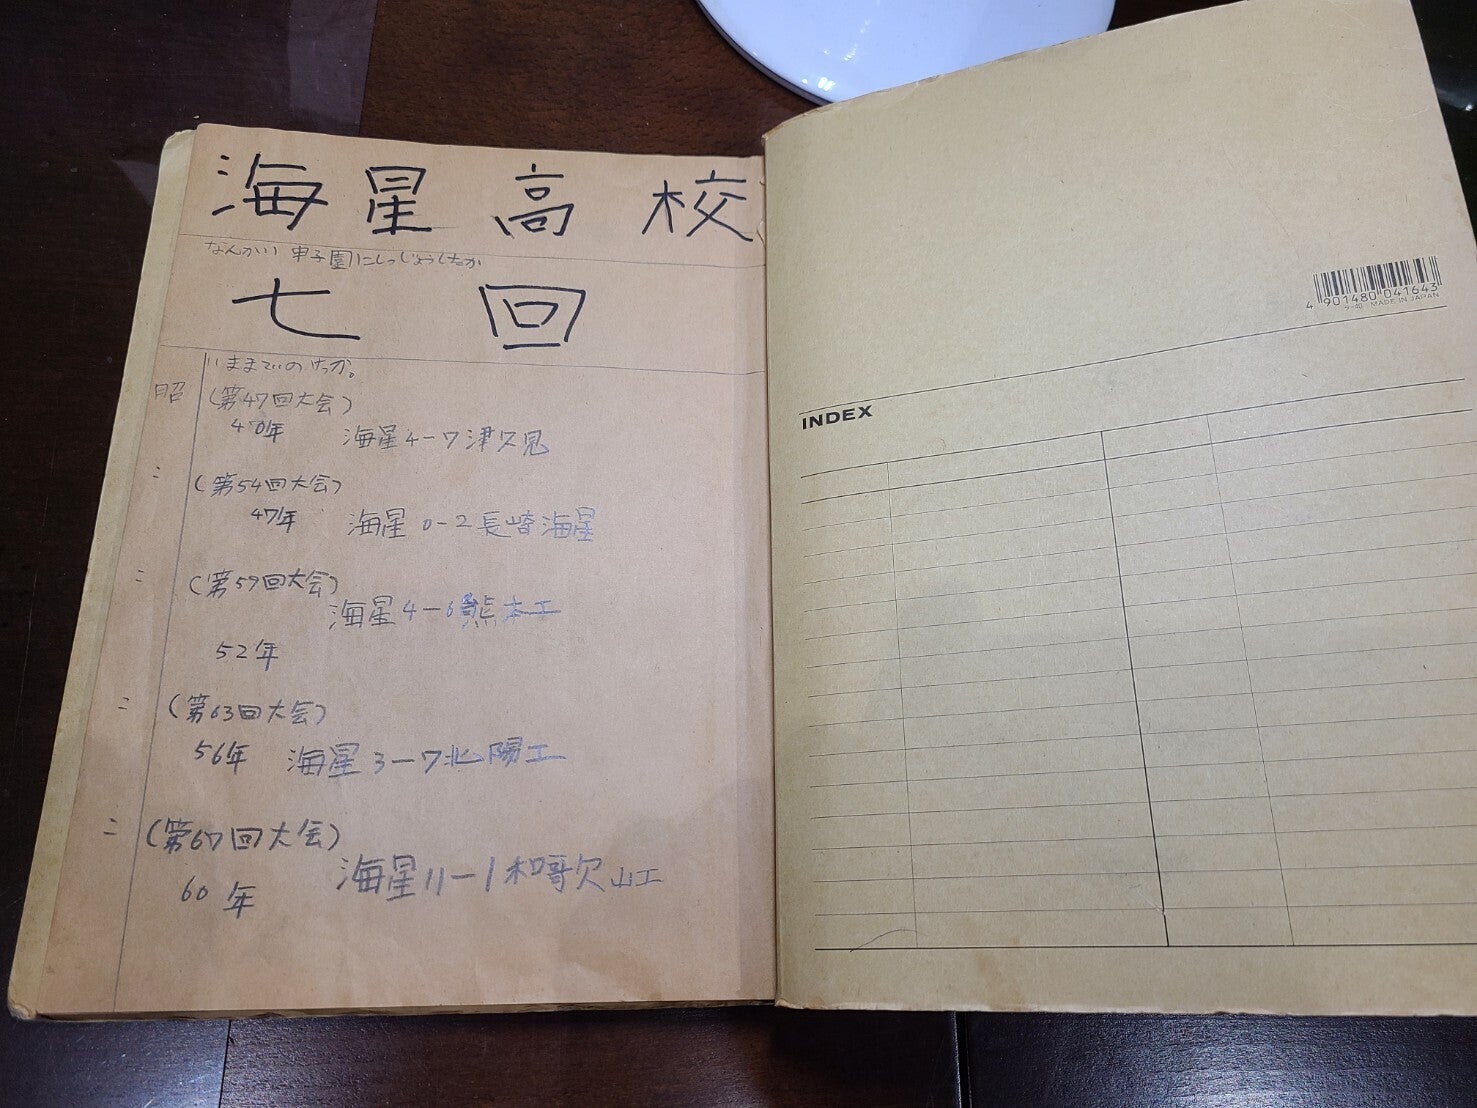 海星高校
なんかい 甲子園にしつじょうしたか
七回
いままでのけっか。
昭 (第47回大会)
40年 海星4-7津久見
〃 (第54回大会)
47年 海星0-2長崎海星
〃 (第59回大会)
海星4-6熊本工
52年
〃 (第63回大会)
56年 海星3-7北陽工
〃 (第67回大会)
海星11-1和歌山工
60年
4 901480 041643
ラ-40 MADE IN JAPAN
INDEX